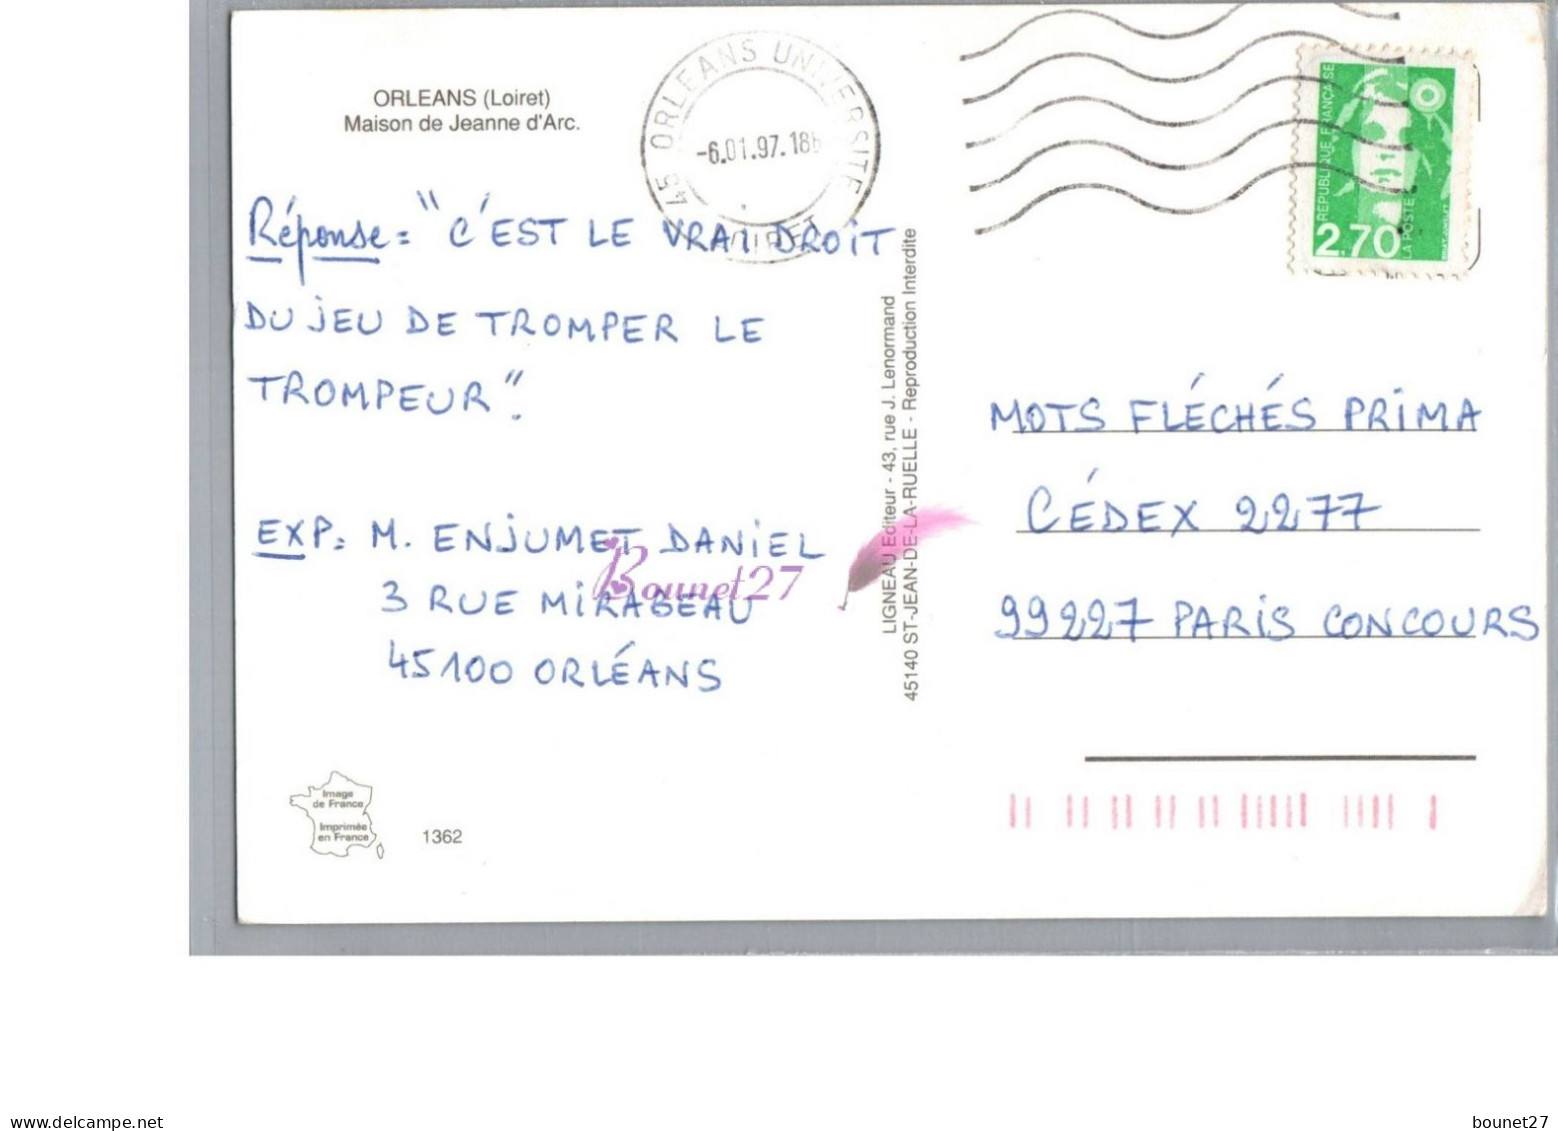 ORLEANS (Loiret)
Maison de Jeanne d'Arc.
45 ORLEANS UNIVERSITE
LOIRET
-6.01.97.18
REPUBLIQUE FRANÇAISE
2.70
LA POSTE
Réponse = "C'EST LE VRAI DROIT
DU JEU DE TROMPER LE
TROMPEUR".
EXP: M. ENJUMET DANIEL
3 RUE MIRABEAU
45100 ORLÉANS
Bounet27
LIGNEAU Editeur - 43, rue J. Lenormand
45140 ST-JEAN-DE-LA-RUELLE - Reproduction Interdite
MOTS FLÉCHÉS PRIMA
CÉDEX 2277
99227 PARIS CONCOURS
Image
de France
Imprimée
en France
1362
delcampe.net
bounet27